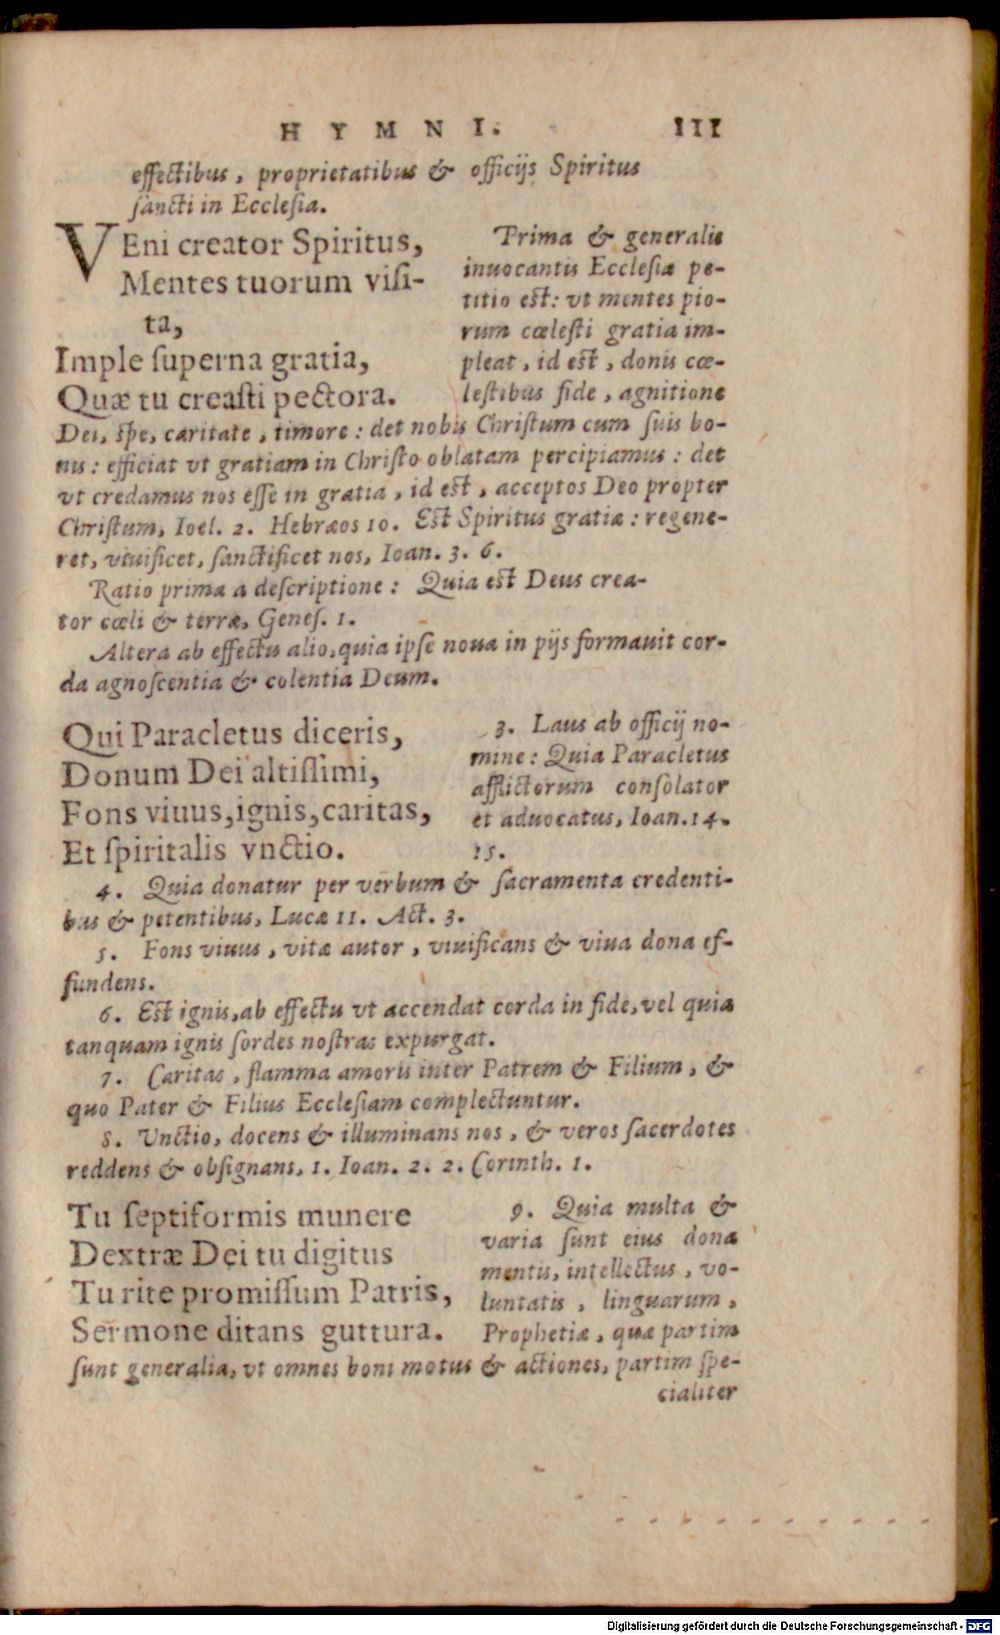 HYMNI. 111
effectibus, proprietatibus & officijs Spiritus
sancti in Ecclesia.
VEni creator Spiritus,
Mentes tuorum visi-
ta,
Imple superna gratia,
Quæ tu creasti pectora.
Prima & generalis
inuocantis Ecclesiæ pe-
titio est: vt mentes pio-
rum cœlesti gratia im-
pleat, id est, donis cœ-
lestibus fide, agnitione
Dei, spe, caritate, timore: det nobis Christum cum suis bo-
nis: efficiat vt gratiam in Christo oblatam percipiamus: det
vt credamus nos esse in gratia, id est, acceptos Deo propter
Christum, Ioel. 2. Hebræos 10. Est Spiritus gratiæ: regene-
ret, viuificet, sanctificet nos, Ioan. 3. 6.
Ratio prima a descriptione: Quia est Deus crea-
tor cœli & terræ, Genes. 1.
Altera ab effectu alio, quia ipse noua in pijs formauit cor-
da agnoscentia & colentia Deum.
Qui Paracletus diceris,
Donum Dei altissimi,
Fons viuus, ignis, caritas,
Et spiritalis vnctio.
3. Laus ab officij no-
mine: Quia Paracletus
afflictorum consolator
et aduocatus, Ioan. 14.
15.
4. Quia donatur per verbum & sacramenta credenti-
bus & petentibus, Lucæ 11. Act. 3.
5. Fons viuus, vitæ autor, viuificans & viua dona ef-
fundens.
6. Est ignis, ab effectu vt accendat corda in fide, vel quia
tanquam ignis sordes nostras expurgat.
7. Caritas, flamma amoris inter Patrem & Filium, &
quo Pater & Filius Ecclesiam complectuntur.
8. Vnctio, docens & illuminans nos, & veros sacerdotes
reddens & obsignans, 1. Ioan. 2. 2. Corinth. 1.
Tu septiformis munere
Dextræ Dei tu digitus
Tu rite promissum Patris,
Sermone ditans guttura.
9. Quia multa &
varia sunt eius dona
mentis, intellectus, vo-
luntatis, linguarum,
Prophetiæ, quæ partim
sunt generalia, vt omnes boni motus & actiones, partim spe-
cialiter
Digitalisierung gefördert durch die Deutsche Forschungsgemeinschaft - DFG